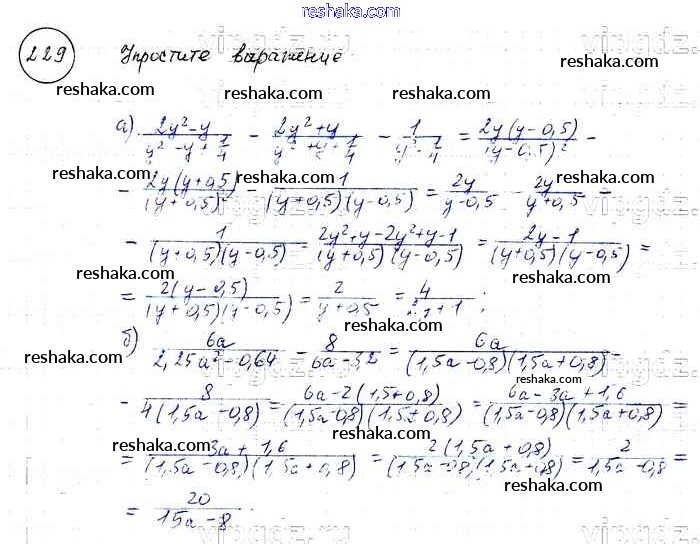 reshaka.com
229 Упростите выражение
reshaka.com reshaka.com
а) (2y² - y)/(y² - y + 1/4) - (2y² + y)/(y² + y + 1/4) - 1/(y² - 1/4) = 2y(y - 0,5)/(y - 0,5)² -
reshaka.com reshaka.com
- 2y(y + 0,5)/(y + 0,5)² - 1/((y + 0,5)(y - 0,5)) = 2y/(y - 0,5) - 2y/(y + 0,5) -
reshaka.com
- 1/((y + 0,5)(y - 0,5)) = (2y² + y - 2y² + y - 1)/((y + 0,5)(y - 0,5)) = (2y - 1)/((y + 0,5)(y - 0,5)) =
reshaka.com reshaka.com
= 2(y - 0,5)/((y + 0,5)(y - 0,5)) = 2/(y + 0,5) = 4/(2y + 1);
reshaka.com
б) 6a/(2,25a² - 0,64) - 8/(6a - 3,2) = 6a/((1,5a - 0,8)(1,5a + 0,8)) -
reshaka.com reshaka.com
- 8/(4(1,5a - 0,8)) = (6a - 2(1,5 + 0,8))/((1,5a - 0,8)(1,5a + 0,8)) = (6a - 3a + 1,6)/((1,5a - 0,8)(1,5a + 0,8)) =
reshaka.com reshaka.com
= (3a + 1,6)/((1,5a - 0,8)(1,5a + 0,8)) = 2(1,5a + 0,8)/((1,5a - 0,8)(1,5a + 0,8)) = 2/(1,5a - 0,8) =
reshaka.com reshaka.com
= 20/(15a - 8).
reshaka.com